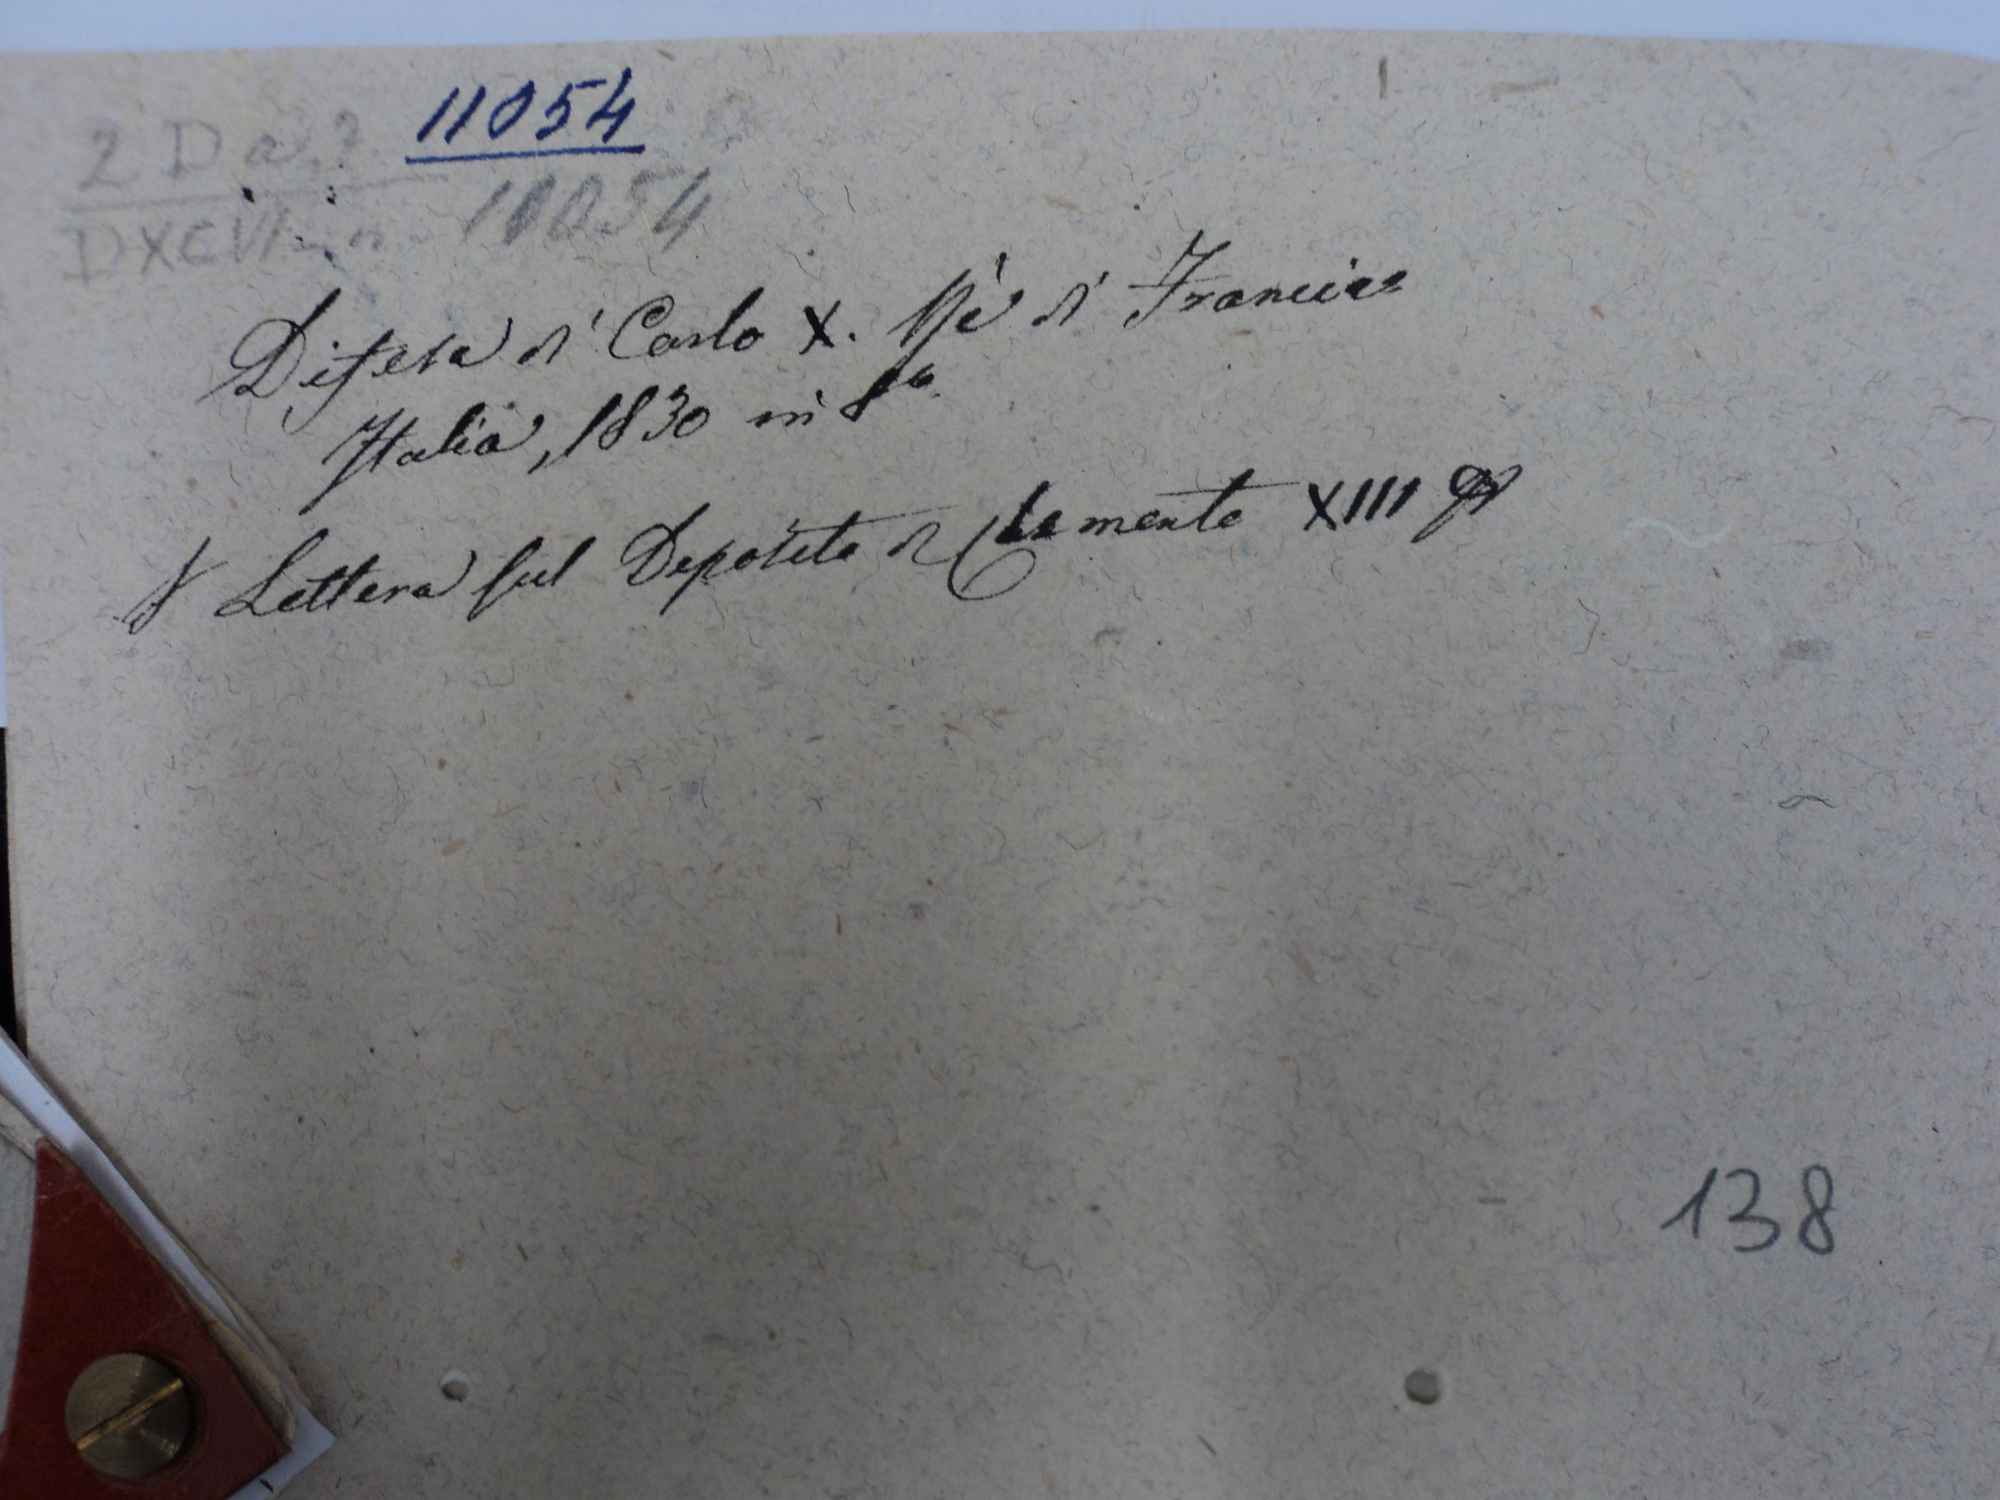 11054
2 D a.
DXCVI 11054
Difesa di Carlo X. Rè di Francia
Italia, 1830 in 8º
Lettera sul Deposito di Clemente XIII
138